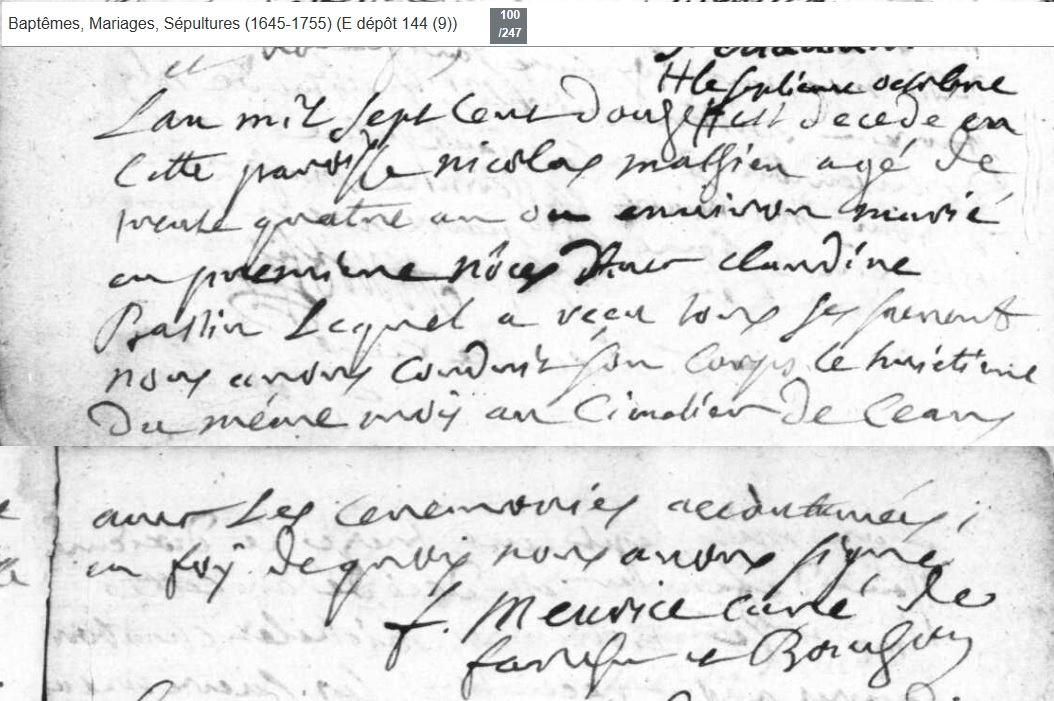 Baptêmes, Mariages, Sépultures (1645-1755) (E dépôt 144 (9))
100
/247
H le septieme octobre
Lan mil sept cent douze H est decede en
Cette paroisse nicolas mathieu agé de
trente quatre an ou environ marié
en premiere nôces avec claudine
Lequel a recu tous ses sacremt
nous avons conduit son corps le huictieme
Du méme mois au Cimetier de Ceans
avec Les ceremonies accoutumées ;
en foÿ de quoy nous avons signe
f. Meurice curé de
et